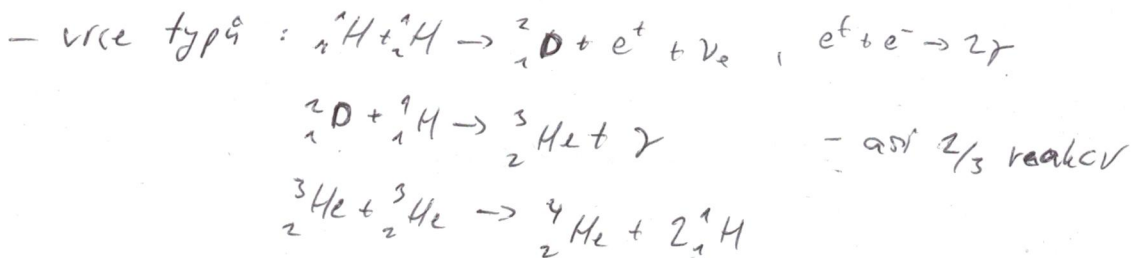 – více typů : ¹₁H + ¹₁H → ²₁D + e⁺ + νₑ , e⁺ + e⁻ → 2γ
²₁D + ¹₁H → ³₂He + γ – asi 2/3 reakcí
³₂He + ³₂He → ⁴₂He + 2 ¹₁H